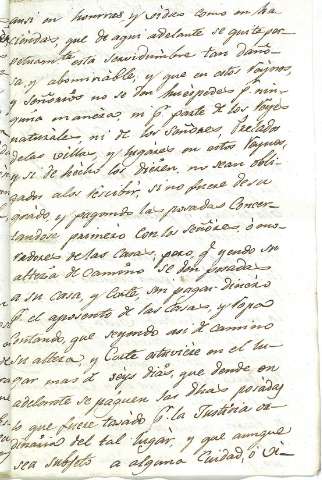 ansi en honrras y vidas como en ha
ciendas, que de aqui adelante se quite per
petuamente esta servidumbre tan daño
sa, y abominable, y que en estos Reynos,
y Señorios no se den huespedes pr. nin
guna manera, ni pr. parte de los Reyes
naturales, ni de los Señores, Prelados
delas villas, y lugares en estos Reynos,
y si de hecho los dieren, no sean obli
gados a los rescibir, si no fuere de su
grado, y pagando las posadas concer
tandose primero con los señores, ó mo
radores de las casas, pero, q. yendo su
alteza de camino se den posadas
a su casa, y Corte, sin pagar dinero
pr. el aposento de las casas, y ropa
contando, que seyendo asi de camino
su alteza, y Corte estuviere en el lu
gar mas de seys dias, que dende en
adelante se paguen las dhas posadas
lo que fuere tasado pr. la Justicia or
dinaria del tal lugar, y que aunque
sea subjeto a alguna Ciudad, ó Vi-